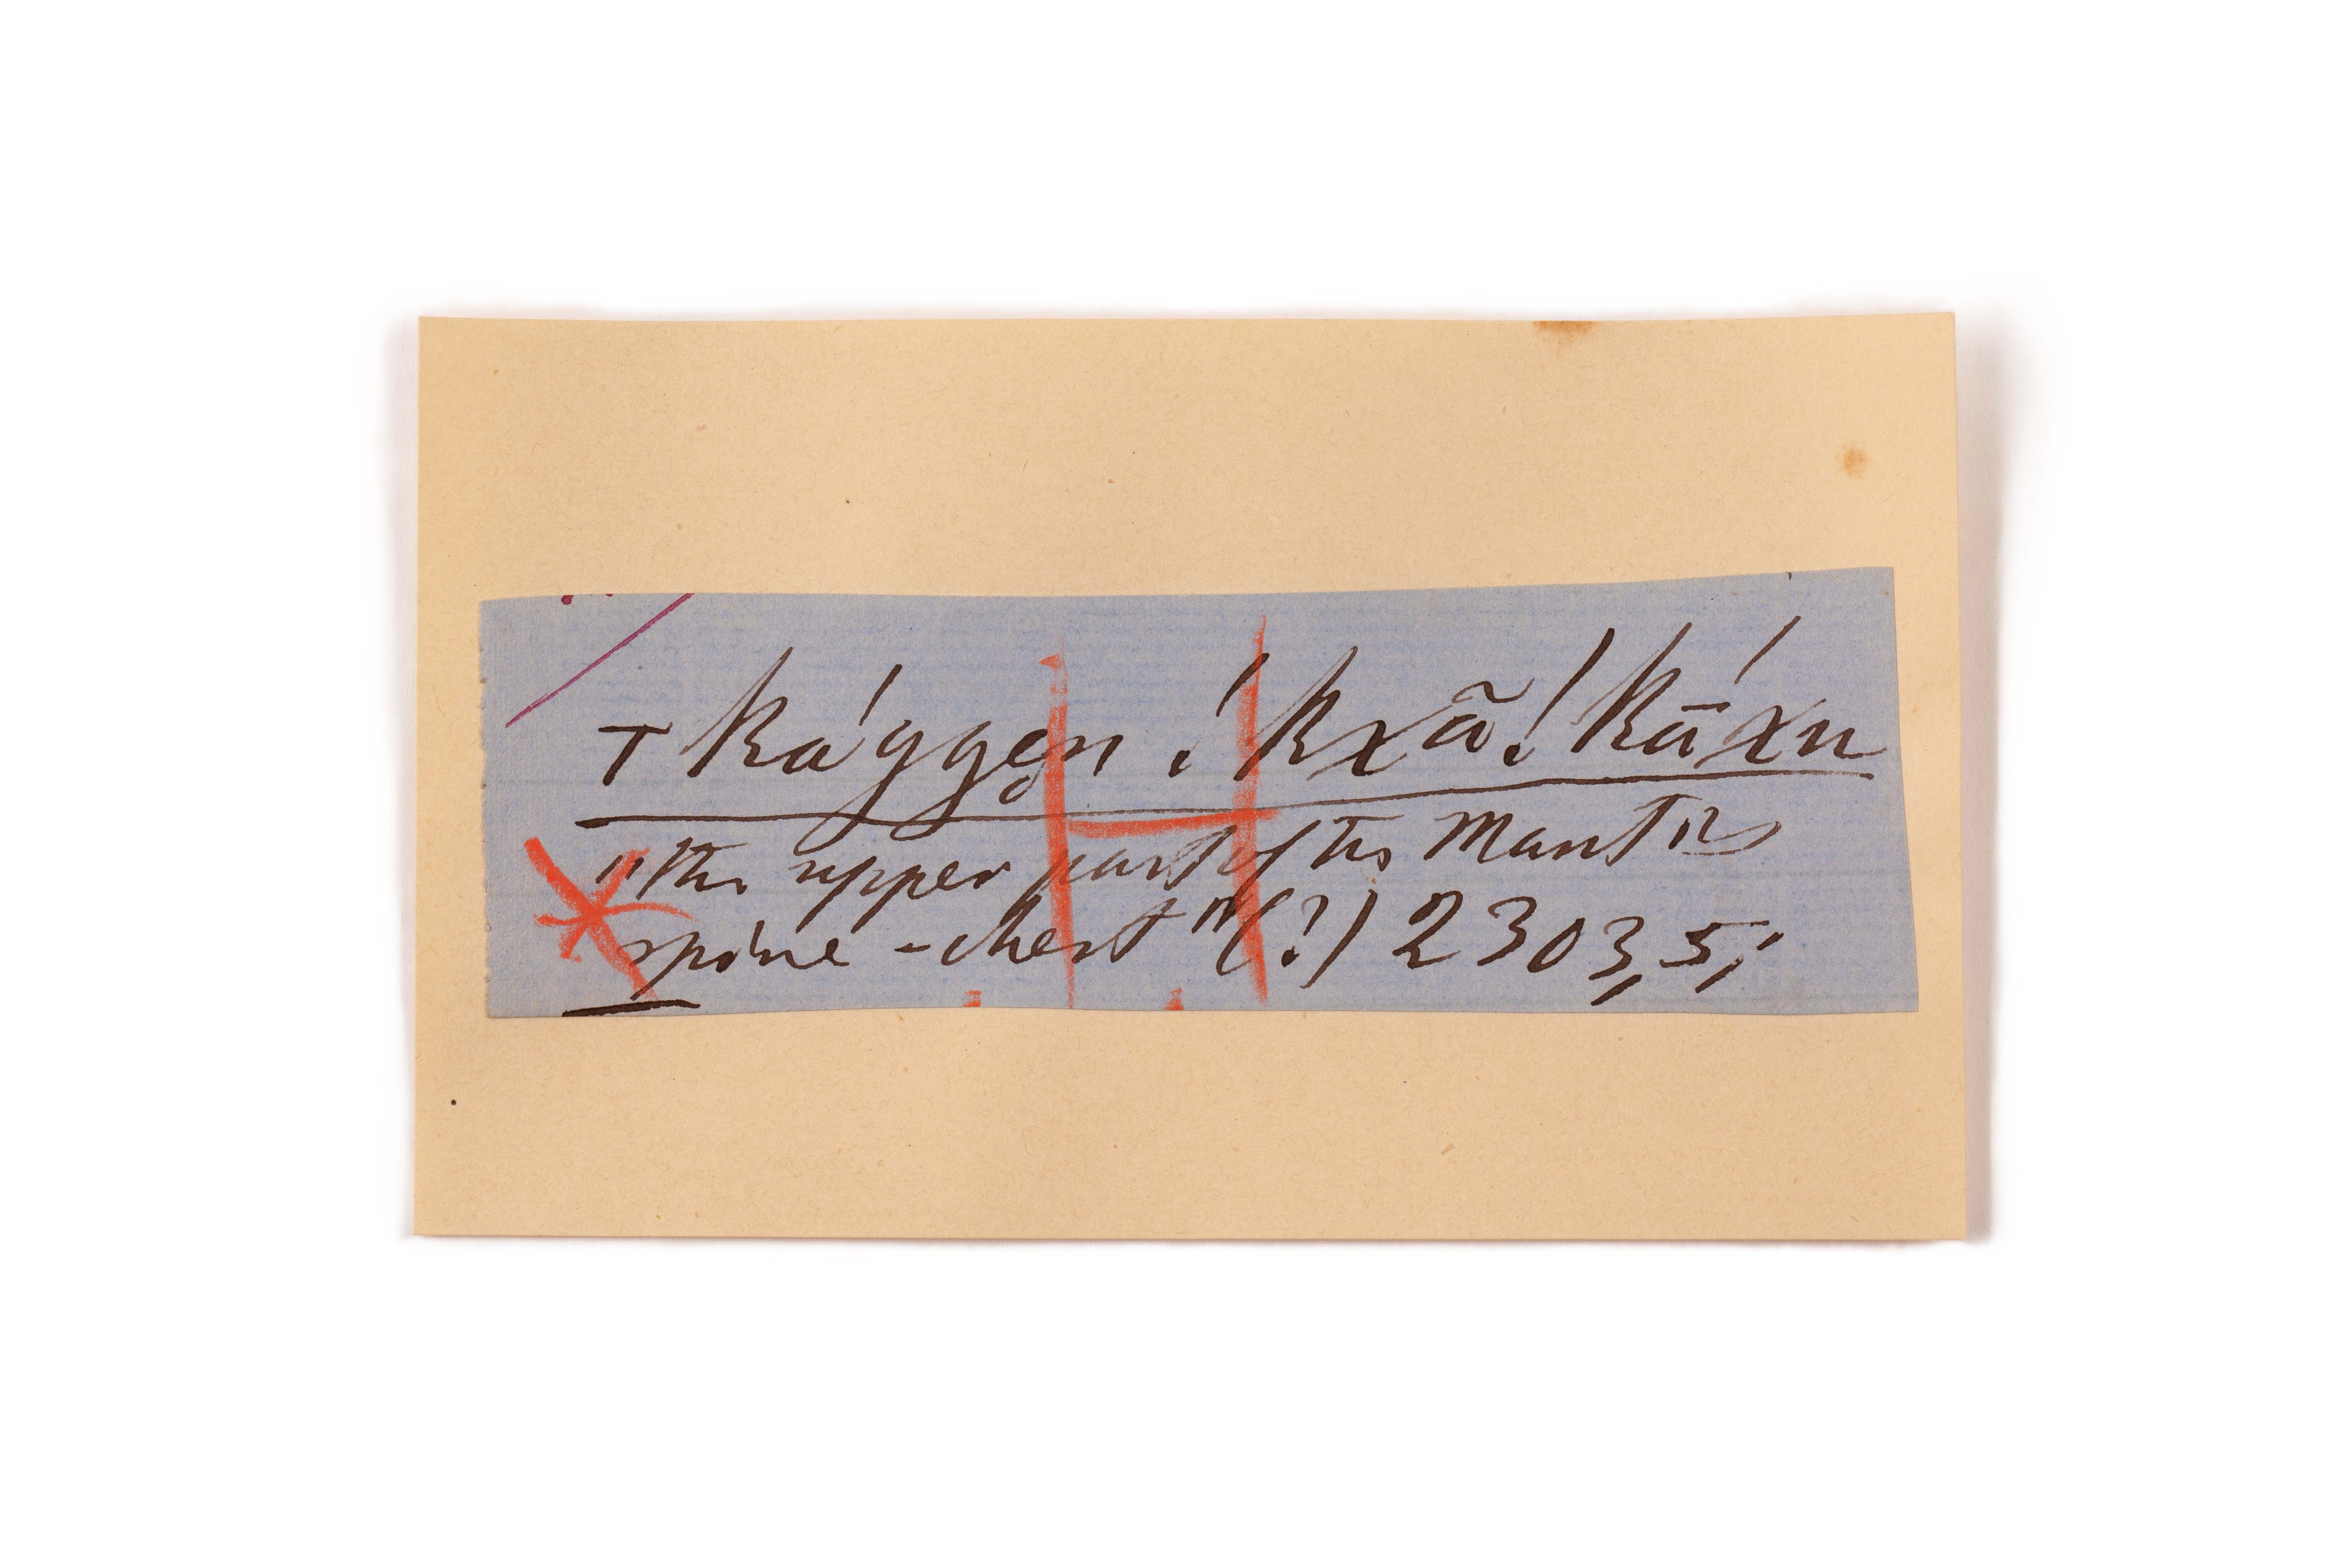 ⊤kággen̥ !kxã! kā́xu
"the upper part of the Mantis
spine-chest" (?) 2303, 5,'